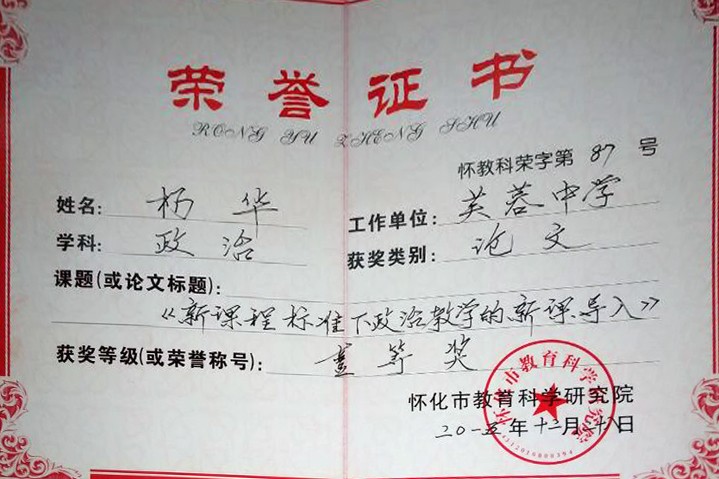 荣誉证书
RONG YU ZHENG SHU
怀教科荣字第 87 号
姓名: 杨华
工作单位: 芙蓉中学
学科: 政治
获奖类别: 论文
课题(或论文标题):
《新课程标准下政治教学的新课导入》
获奖等级(或荣誉称号): 壹等奖
怀化市教育科学研究院
二〇一五年十二月二十八日
怀化市教育科学研究院